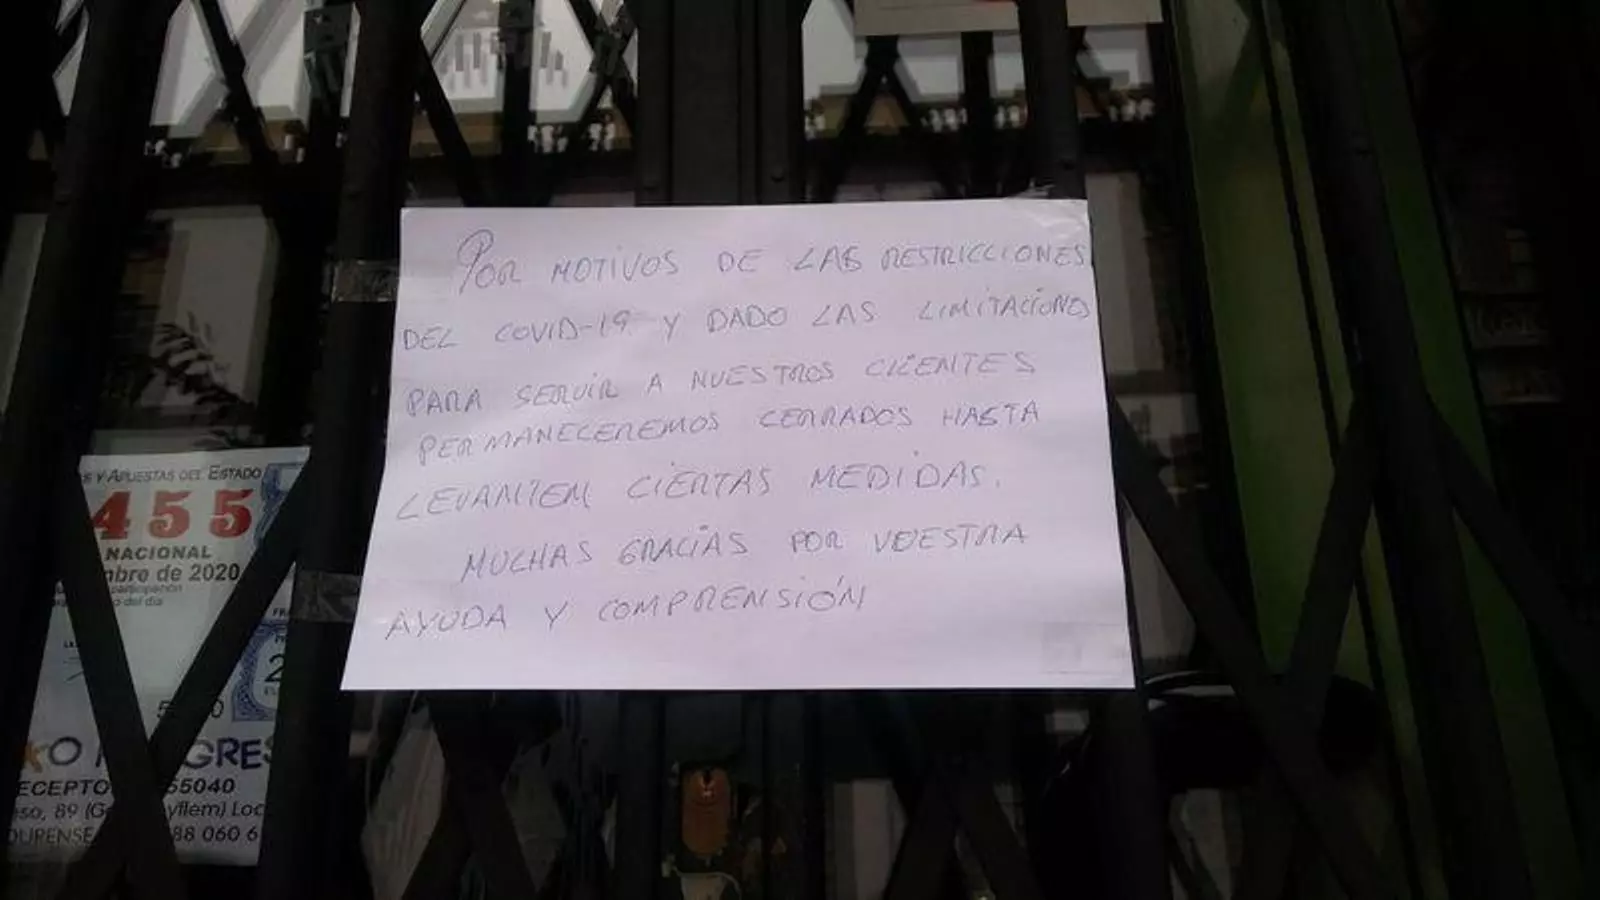 POR MOTIVOS DE LAS RESTRICCIONES
DEL COVID-19 Y DADO LAS LIMITACIONES
PARA SERVIR A NUESTROS CLIENTES
PERMANECEREMOS CERRADOS HASTA
LEVANTEN CIERTAS MEDIDAS.
MUCHAS GRACIAS POR VUESTRA
AYUDA Y COMPRENSIÓN
S Y APUESTAS DEL ESTADO
455
NACIONAL
mbre de 2020
participación
o del día
GRES
ECEPTO 55040
eso, 89 (G yllem) Loc
OURENSE 88 060 6